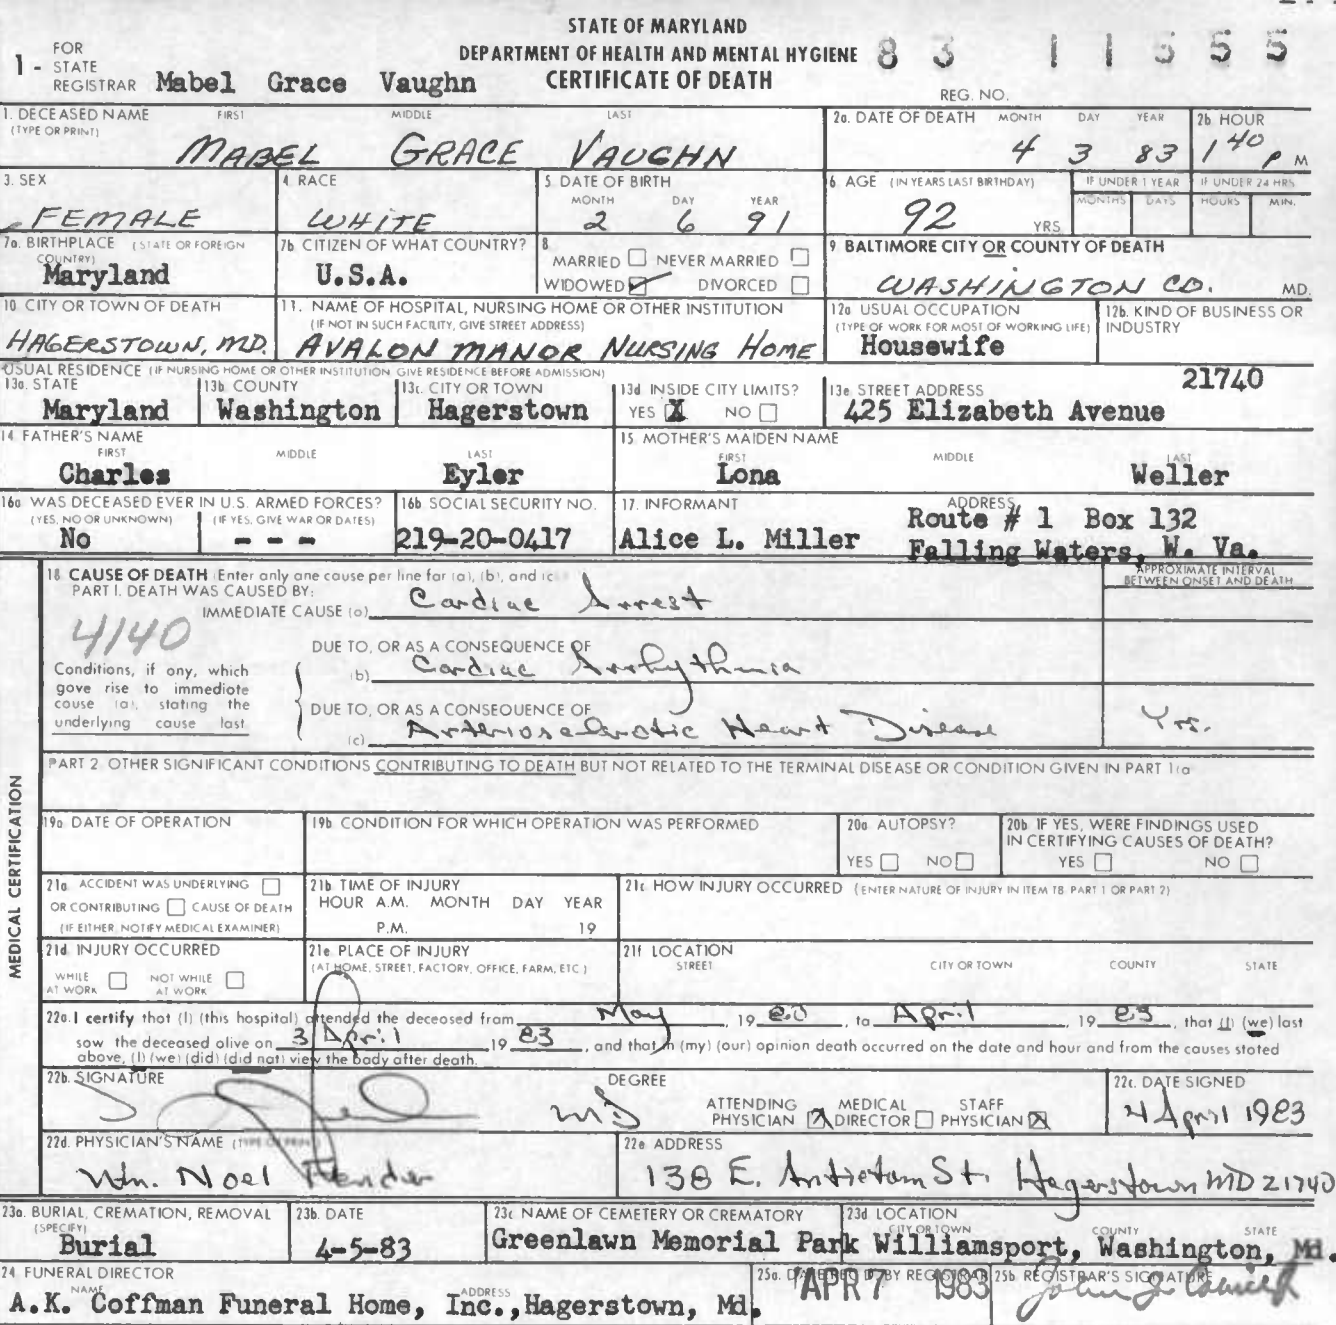 STATE OF MARYLAND
DEPARTMENT OF HEALTH AND MENTAL HYGIENE
CERTIFICATE OF DEATH
83 11555
REG. NO.
1 - FOR STATE REGISTRAR Mabel Grace Vaughn
1. DECEASED NAME (TYPE OR PRINT) FIRST MIDDLE LAST
MABEL GRACE VAUGHN
2a. DATE OF DEATH MONTH DAY YEAR
4 3 83
2b HOUR
1 40 P M
3. SEX
FEMALE
4 RACE
WHITE
5 DATE OF BIRTH
MONTH DAY YEAR
2 6 91
6 AGE (IN YEARS LAST BIRTHDAY)
92 YRS
IF UNDER 1 YEAR
MONTHS DAYS
IF UNDER 24 HRS
HOURS MIN.
7a. BIRTHPLACE (STATE OR FOREIGN COUNTRY)
Maryland
7b CITIZEN OF WHAT COUNTRY?
U.S.A.
8
MARRIED NEVER MARRIED
WIDOWED DIVORCED
9 BALTIMORE CITY OR COUNTY OF DEATH
WASHINGTON CO. MD.
10 CITY OR TOWN OF DEATH
HAGERSTOWN, MD.
11. NAME OF HOSPITAL, NURSING HOME OR OTHER INSTITUTION
(IF NOT IN SUCH FACILITY, GIVE STREET ADDRESS)
AVALON MANOR NURSING HOME
12a USUAL OCCUPATION
(TYPE OF WORK FOR MOST OF WORKING LIFE)
Housewife
12b. KIND OF BUSINESS OR INDUSTRY
USUAL RESIDENCE (IF NURSING HOME OR OTHER INSTITUTION GIVE RESIDENCE BEFORE ADMISSION)
13a. STATE
Maryland
13b COUNTY
Washington
13c. CITY OR TOWN
Hagerstown
13d INSIDE CITY LIMITS?
YES X NO
13e STREET ADDRESS 21740
425 Elizabeth Avenue
14 FATHER'S NAME
FIRST MIDDLE LAST
Charles Eyler
15 MOTHER'S MAIDEN NAME
FIRST MIDDLE LAST
Lona Weller
16a WAS DECEASED EVER IN U.S. ARMED FORCES?
(YES, NO OR UNKNOWN) (IF YES, GIVE WAR OR DATES)
No - - -
16b SOCIAL SECURITY NO.
219-20-0417
17. INFORMANT
Alice L. Miller
ADDRESS
Route # 1 Box 132
Falling Waters, W. Va.
MEDICAL CERTIFICATION
18 CAUSE OF DEATH (Enter only one cause per line for (a), (b), and (c
PART I. DEATH WAS CAUSED BY:
IMMEDIATE CAUSE (a) Cardiac Arrest
APPROXIMATE INTERVAL BETWEEN ONSET AND DEATH
4140
Conditions, if any, which
gove rise to immediote
couse (a), stating the
underlying cause last
DUE TO, OR AS A CONSEQUENCE OF
(b) Cardiac Arrhythmia
DUE TO, OR AS A CONSEQUENCE OF
(c) Arteriosclerotic Heart Disease Yrs.
PART 2 OTHER SIGNIFICANT CONDITIONS CONTRIBUTING TO DEATH BUT NOT RELATED TO THE TERMINAL DISEASE OR CONDITION GIVEN IN PART 1(a
19a DATE OF OPERATION
19b CONDITION FOR WHICH OPERATION WAS PERFORMED
20a AUTOPSY?
YES NO
20b IF YES, WERE FINDINGS USED
IN CERTIFYING CAUSES OF DEATH?
YES NO
21a ACCIDENT WAS UNDERLYING
OR CONTRIBUTING CAUSE OF DEATH
(IF EITHER, NOTIFY MEDICAL EXAMINER)
21b TIME OF INJURY
HOUR A.M. MONTH DAY YEAR
P.M. 19
21c HOW INJURY OCCURRED (ENTER NATURE OF INJURY IN ITEM 18 PART 1 OR PART 2)
21d INJURY OCCURRED
WHILE AT WORK NOT WHILE AT WORK
21e PLACE OF INJURY
(AT HOME, STREET, FACTORY, OFFICE, FARM, ETC.)
21f LOCATION
STREET CITY OR TOWN COUNTY STATE
22a. I certify that (I) (this hospital) attended the deceased from May, 19 80, to April, 19 83, that (I) (we) last
sow the deceased olive on 3 April 19 83, and that in (my) (our) opinion death occurred on the date and hour and from the causes stated
above, (I) (we) (did) (did not) view the body after death.
22b. SIGNATURE
DEGREE
MD
ATTENDING PHYSICIAN X MEDICAL DIRECTOR STAFF PHYSICIAN X
22c. DATE SIGNED
4 April 1983
22d. PHYSICIAN'S NAME
Wm. Noel
22e ADDRESS
138 E. Antietam St. Hagerstown MD 21740
23a. BURIAL, CREMATION, REMOVAL
(SPECIFY)
Burial
23b. DATE
4-5-83
23c NAME OF CEMETERY OR CREMATORY
Greenlawn Memorial Park
23d LOCATION
CITY OR TOWN COUNTY STATE
Williamsport, Washington, Md.
24 FUNERAL DIRECTOR
NAME ADDRESS
A.K. Coffman Funeral Home, Inc., Hagerstown, Md.
25a. DATE REC'D BY REGISTRAR
APR 7 1983
25b REGISTRAR'S SIGNATURE
John J.